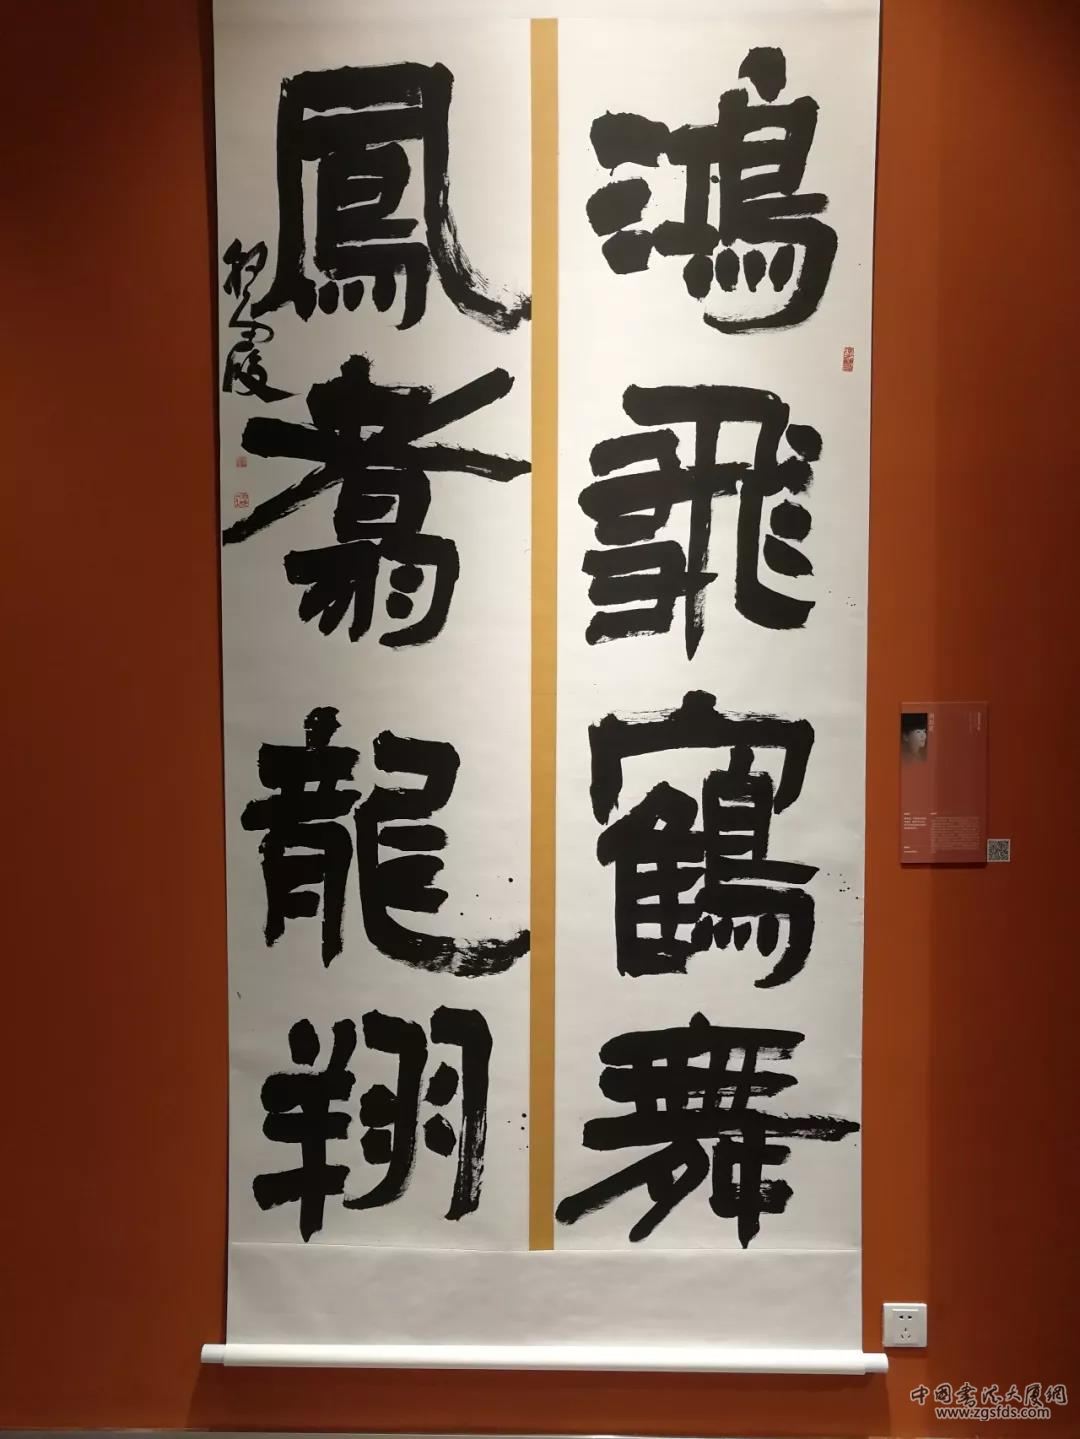 鴻飛鶴舞
鳳翥龍翔
中国书法大厦网
www.zgsfds.com